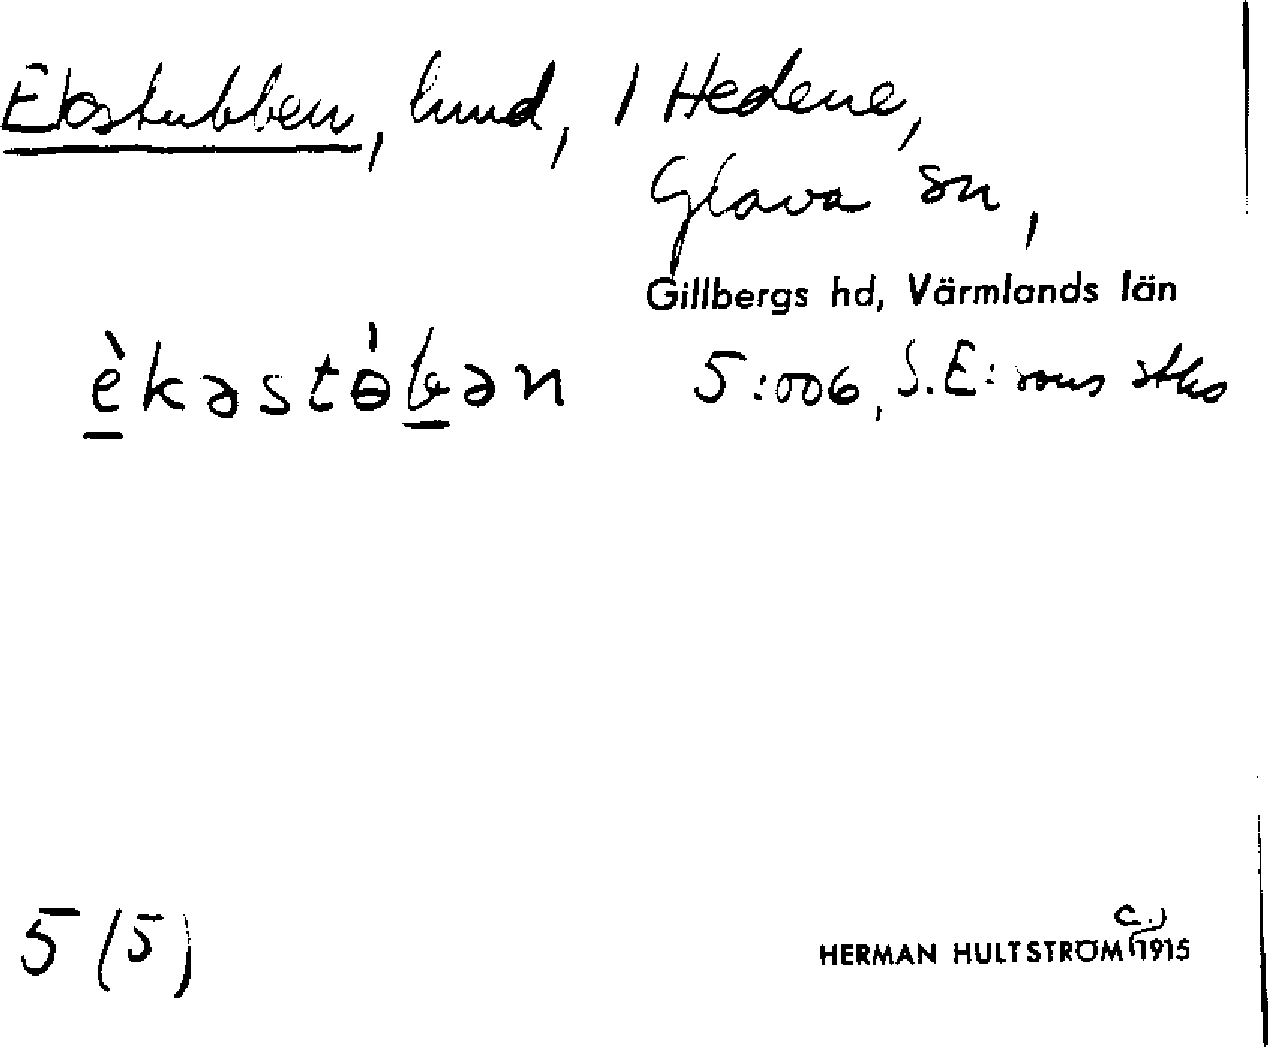 Ekstubben, lund, 1 Hedene,
Glava sn,
Gillbergs hd, Värmlands län
èkəstɵ̀bən 5:006, S.E:
5 (5)
HERMAN HULTSTRÖM (c.) 1915